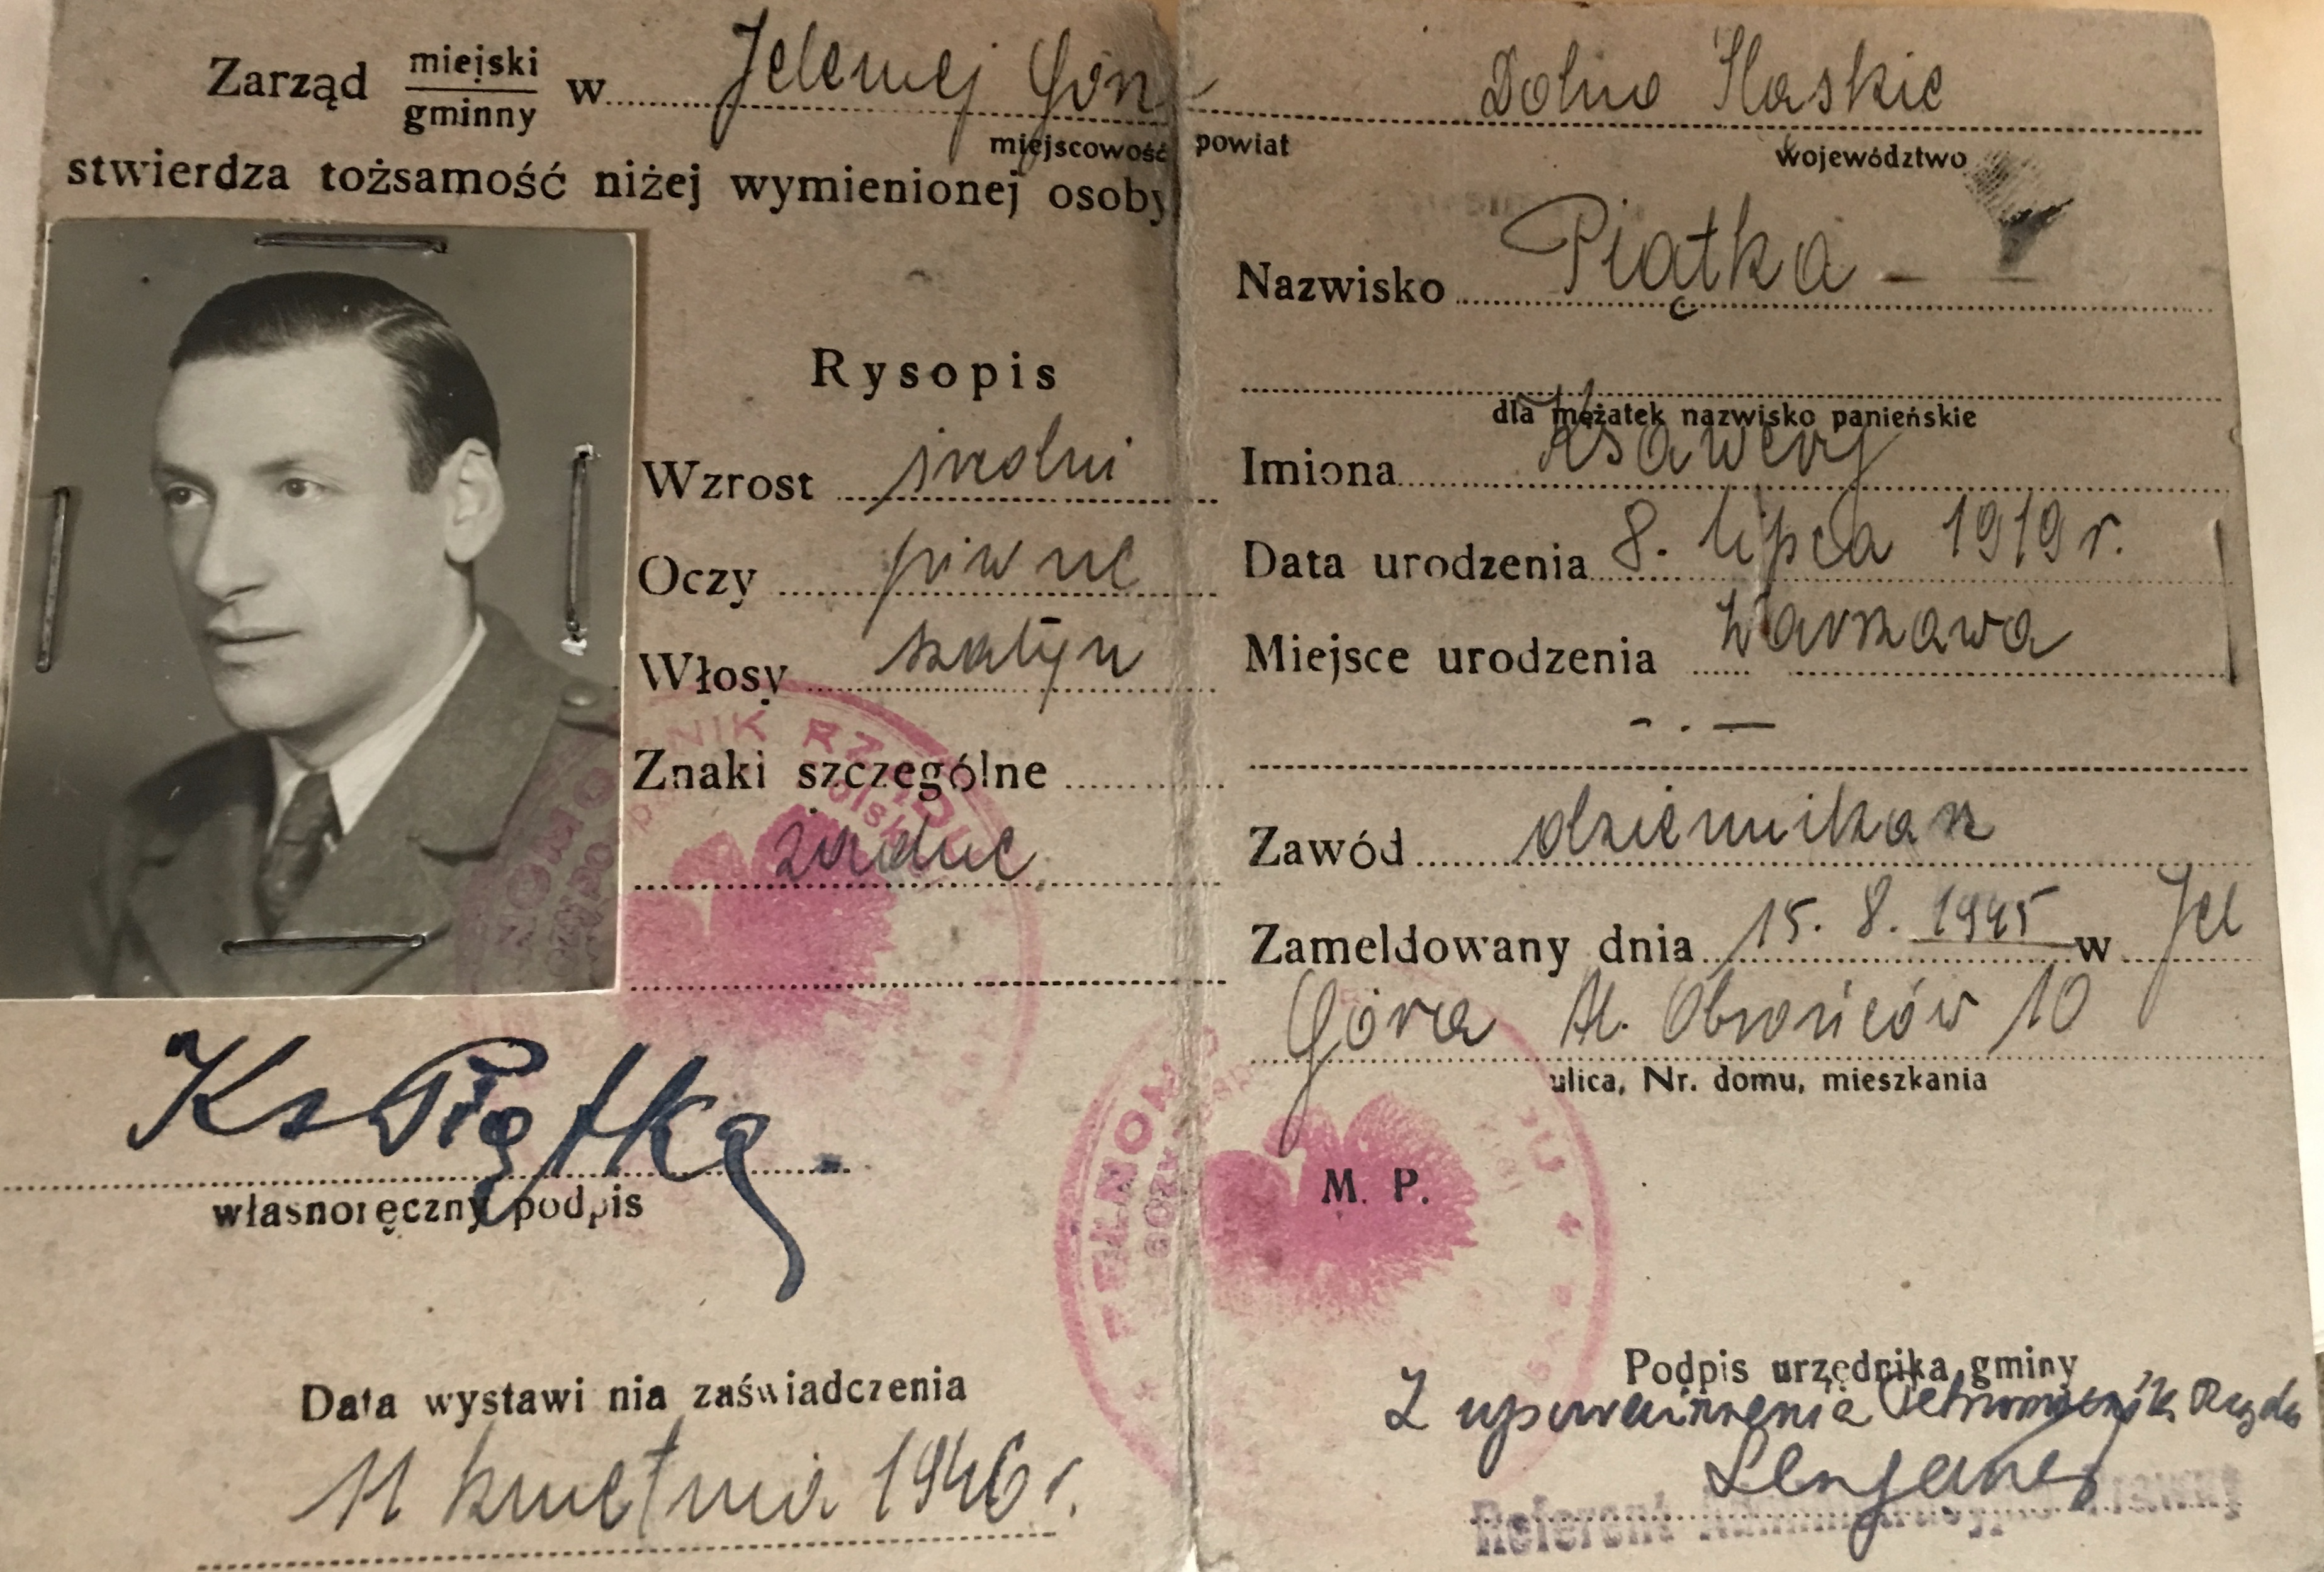 Zarząd miejski/gminny w Jeleniej Górz
miejscowość
stwierdza tożsamość niżej wymienionej osoby
Rysopis
Wzrost średni
Oczy piwne
Włosy szatyn
Znaki szczególne
żadne
Ks Piątka
własnoręczny podpis
Data wystawienia zaświadczenia
11 kwietnia 1946 r.
Dolno Śląskie
powiat województwo
Nazwisko Piątka -
dla mężatek nazwisko panieńskie
Imiona Ksawery
Data urodzenia 8. lipca 1919 r.
Miejsce urodzenia Warszawa
Zawód dziennikarz
Zameldowany dnia 15. 8. 1945 w Jel
Góra Al. Obrońców 10
ulica, Nr. domu, mieszkania
M. P.
PEŁNOMOCNIK RZĄDU
Podpis urzędnika gminy
Z upoważnienia Pełnomocnik Rządu
Referent